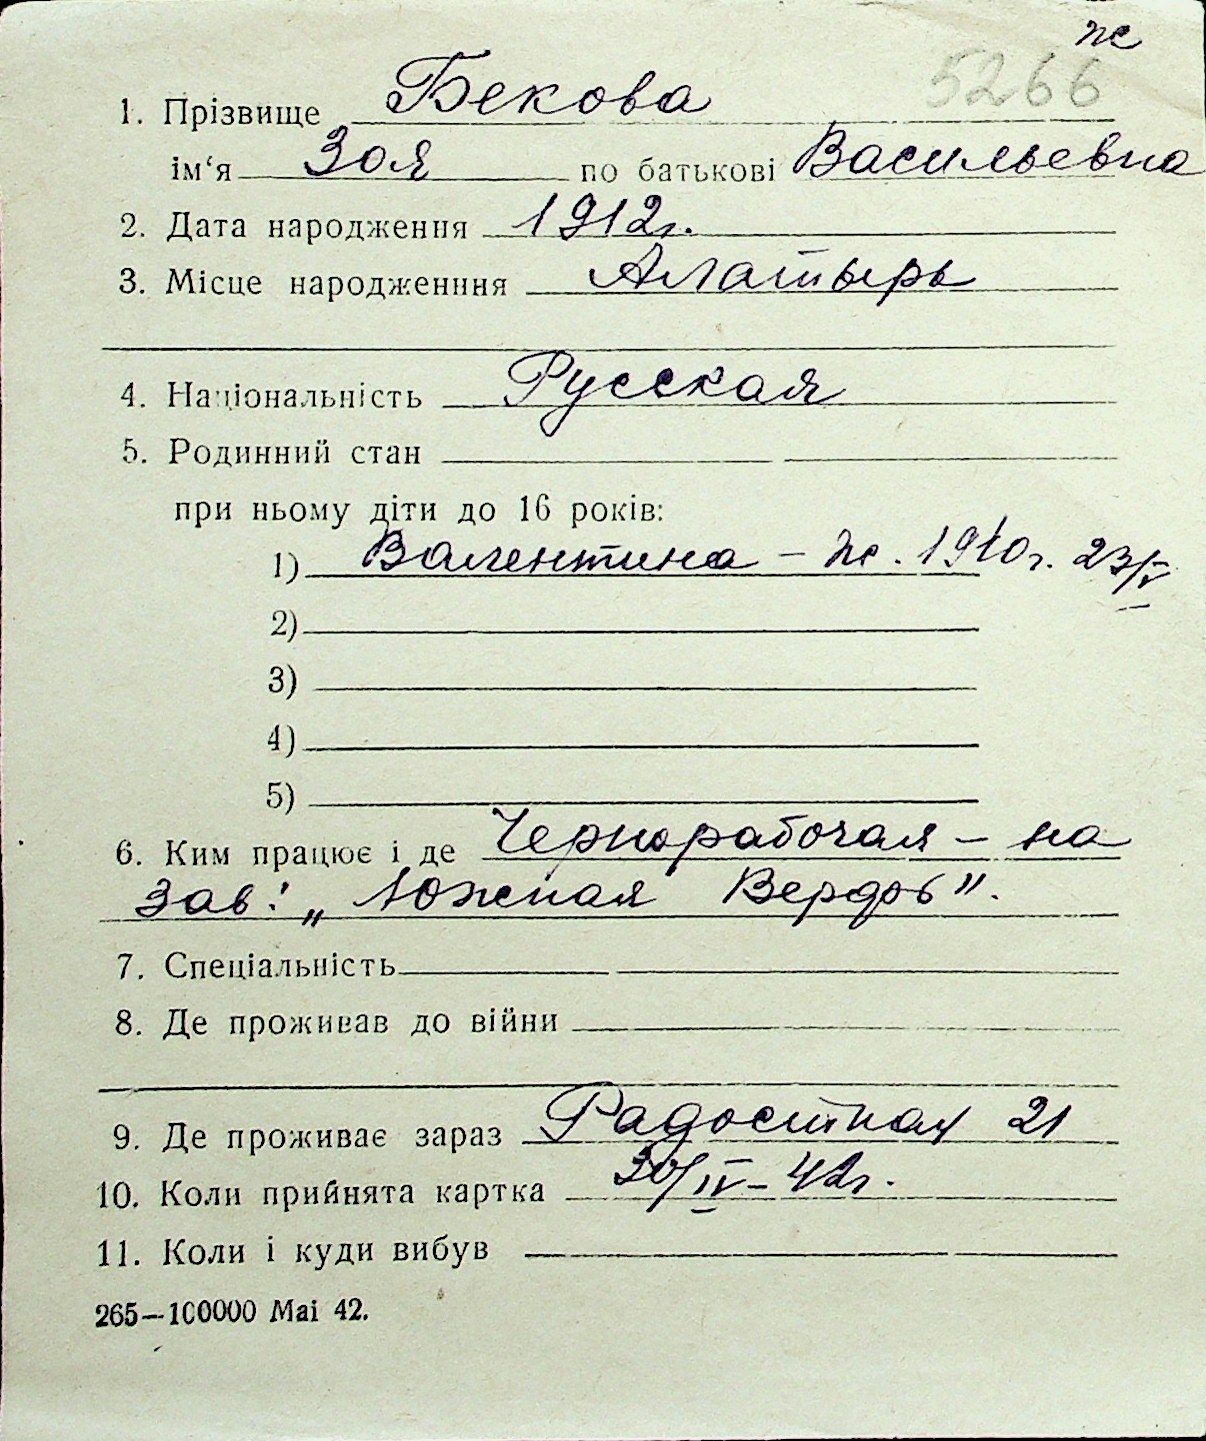 ж
5266
1. Прізвище Бекова
ім‘я Зоя по батькові Васильевна
2. Дата народження 1912г.
3. Місце народженння Алатырь
4. Національність Русская
5. Родинний стан
при ньому діти до 16 років:
1) Валентина – ж. 1940г. 23/V
2)
3)
4)
5)
6. Ким працює і де Чернорабочая – на
Зав. „Южная Вердь".
7. Спеціальність
8. Де проживав до війни
9. Де проживає зараз Радостная 21
10. Коли прийнята картка 30/IV – 42г.
11. Коли і куди вибув
265—100000 Mai 42.